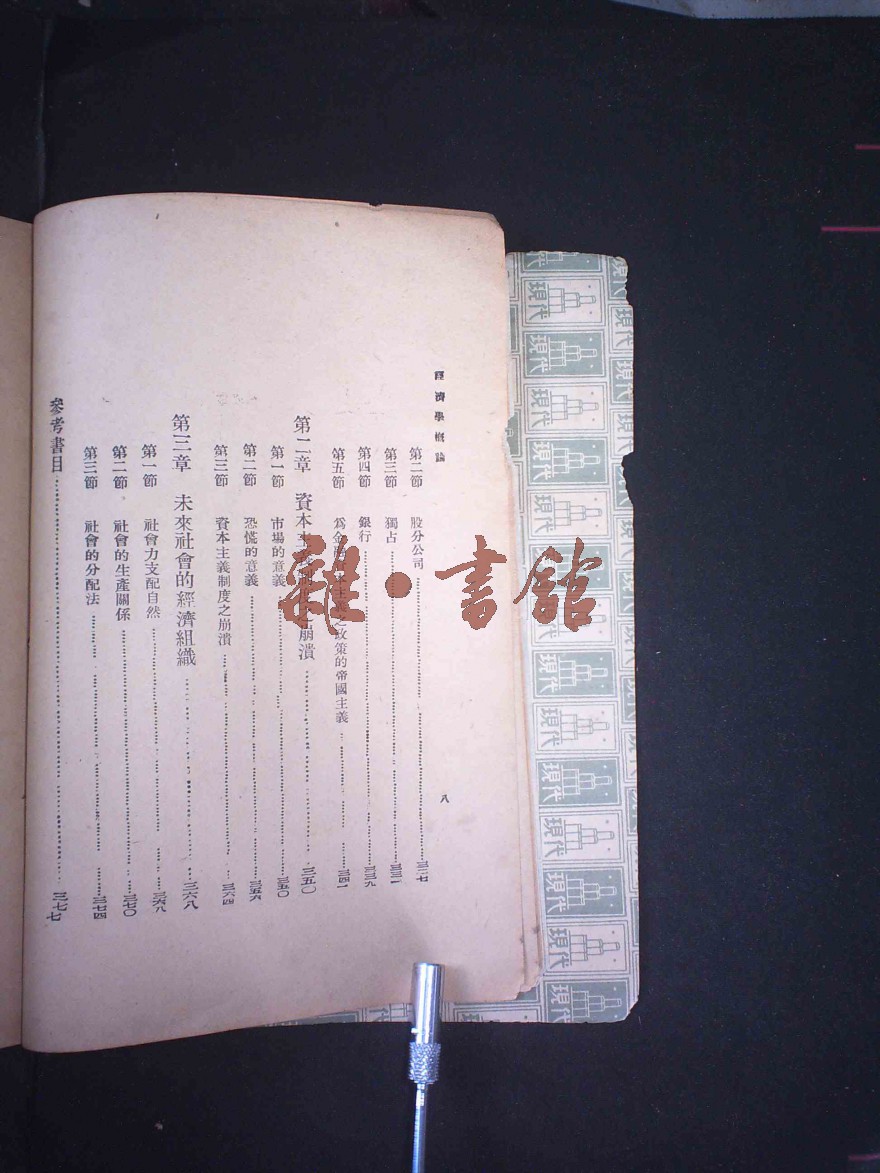 經濟學概論
八
第二節 股分公司 三二七
第三節 獨占 三三一
第四節 銀行 三三九
第五節 爲金融資本主義之政策的帝國主義 三四一
第二章 資本主義制度之崩潰 三五〇
第一節 市場的意義 三五〇
第二節 恐慌的意義 三五六
第三節 資本主義制度之崩潰 三六四
第三章 未來社會的經濟組織 三六八
第一節 社會力支配自然 三六八
第二節 社會的生產關係 三七〇
第三節 社會的分配法 三七四
參考書目 三七七
雜·書館
現代